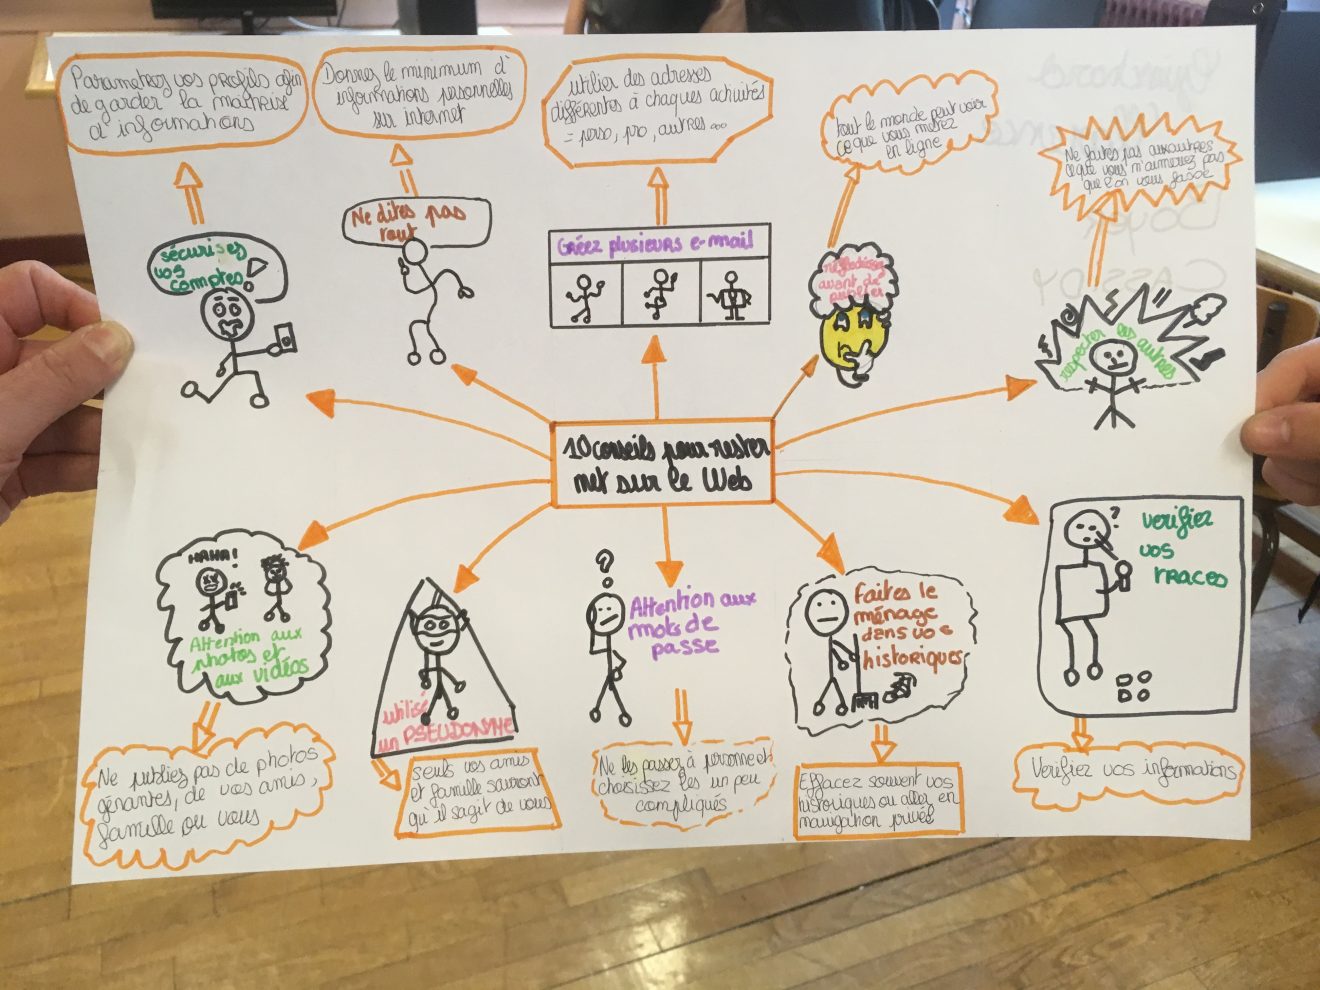 Parametrez vos profils afin
de garder la maitrise
d'informations
Donnez le minimum d'
informations personnelles
sur internet
utiliser des adresses
différentes à chaques activités
= perso, pro, autres...
tout le monde peut voir
ce que vous metez
en ligne
Ne faites pas aux autres
ce que vous n'aimeriez pas
que l'on vous fasse
sécurisez
vos
comptes
Ne dites pas
tout
Créez plusieurs e-mail
réflechissez
avant de
publier
respecter les autres
10 conseils pour rester
net sur le Web
HAHA!
Attention aux
photos et
aux vidéos
utilisé
un PSEUDONYME
?
Attention aux
mots de
passe
Faites le
ménage
dans vos
historiques
?
Verifiez
vos
traces
Ne publiez pas de photos
génantes, de vos amis,
famille ou vous
Seuls vos amis
et famille sauront
qu'il sagit de vous
Ne les passer à personne et
choisissez les un peu
compliqués
Effacez souvent vos
historiques ou aller en
navigation privés
Verifiez vos informations
CASSIDY